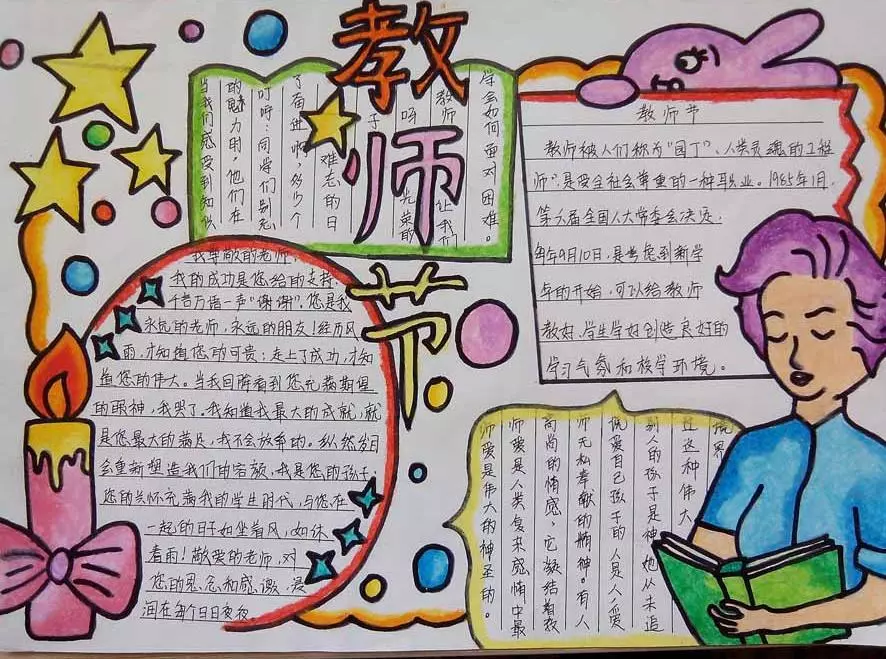 教师节
当我们感受到知识
的魅力时,他们在
叮咛:同学们别忘
了奋进啊,多少个
难忘的日
子
呀
光荣的
教师
让我们
学会如何面对困难。
教师节
教师被人们称为“园丁”、人类灵魂的工程
师”,是受全社会尊重的一种职业。1985年1月,
第六届全国人大常委会决定,
每年9月10日,是考虑到新学
年的开始,可以给教师
教好,学生学好创造良好的
学习气氛和校学环境。
我尊敬的老师,
我的成功是您给的支持,
千言万语一声“谢谢”。您是我
永远的老师,永远的朋友!经历风
雨,才知道您的可贵;走上了成功,才知
道您的伟大。当我回眸看到您充满期望
的眼神,我哭了。我知道我最大的成就,就
是您最大的满足,我不会放弃的。纵然岁月
会重新塑造我们的容颜,我是您的孩子;
您的关怀充满我的学生时代,与您在
一起的日子如坐着风,如沐
着雨!敬爱的老师,对
您的思念和感激,浸
润在每个日日夜夜
师爱是伟大的神圣的。
师爱是人类复杂感情中最
高尚的情感,它凝结着教
师无私奉献的精神。有人
说爱自己孩子的人是人,爱
别人的孩子是神,她从未追
过这种伟大
境界